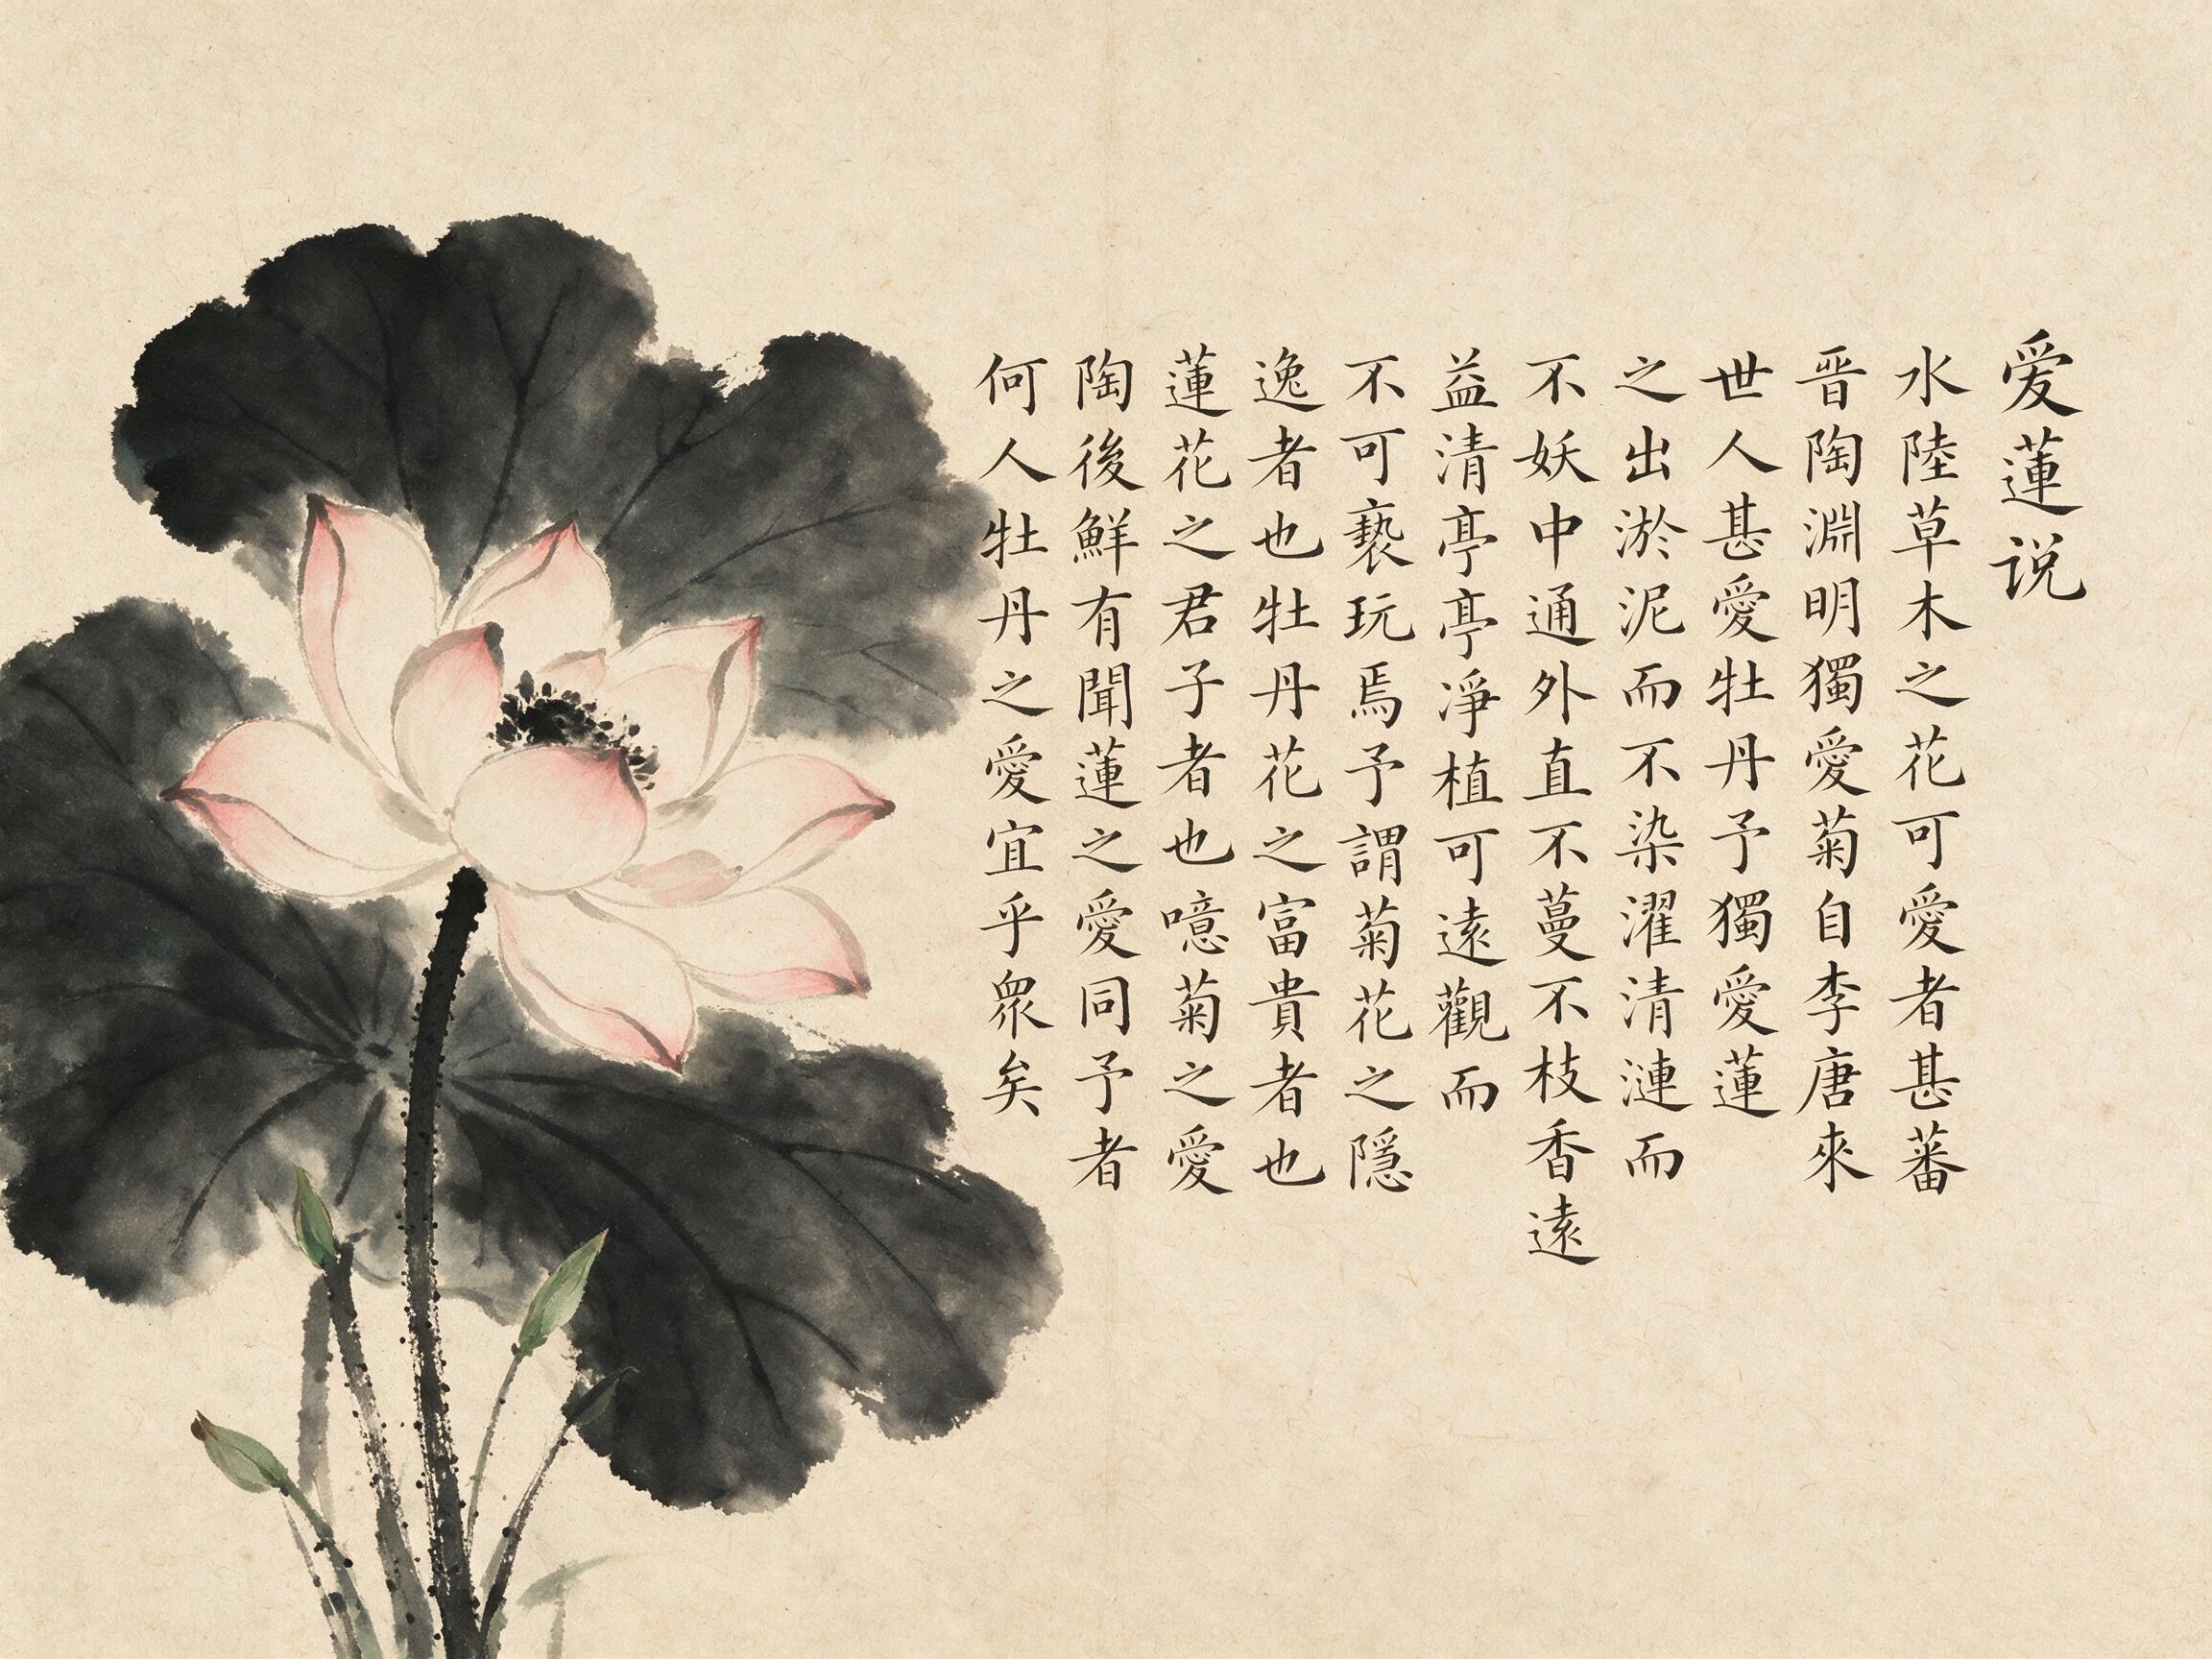 爱蓮说
水陸草木之花可愛者甚蕃
晋陶淵明獨愛菊自李唐來
世人甚愛牡丹予獨愛蓮
之出淤泥而不染濯清漣而
不妖中通外直不蔓不枝香遠
益清亭亭淨植可遠觀而
不可褻玩焉予謂菊花之隱
逸者也牡丹花之富貴者也
蓮花之君子者也噫菊之愛
陶後鮮有聞蓮之愛同予者
何人牡丹之愛宜乎眾矣